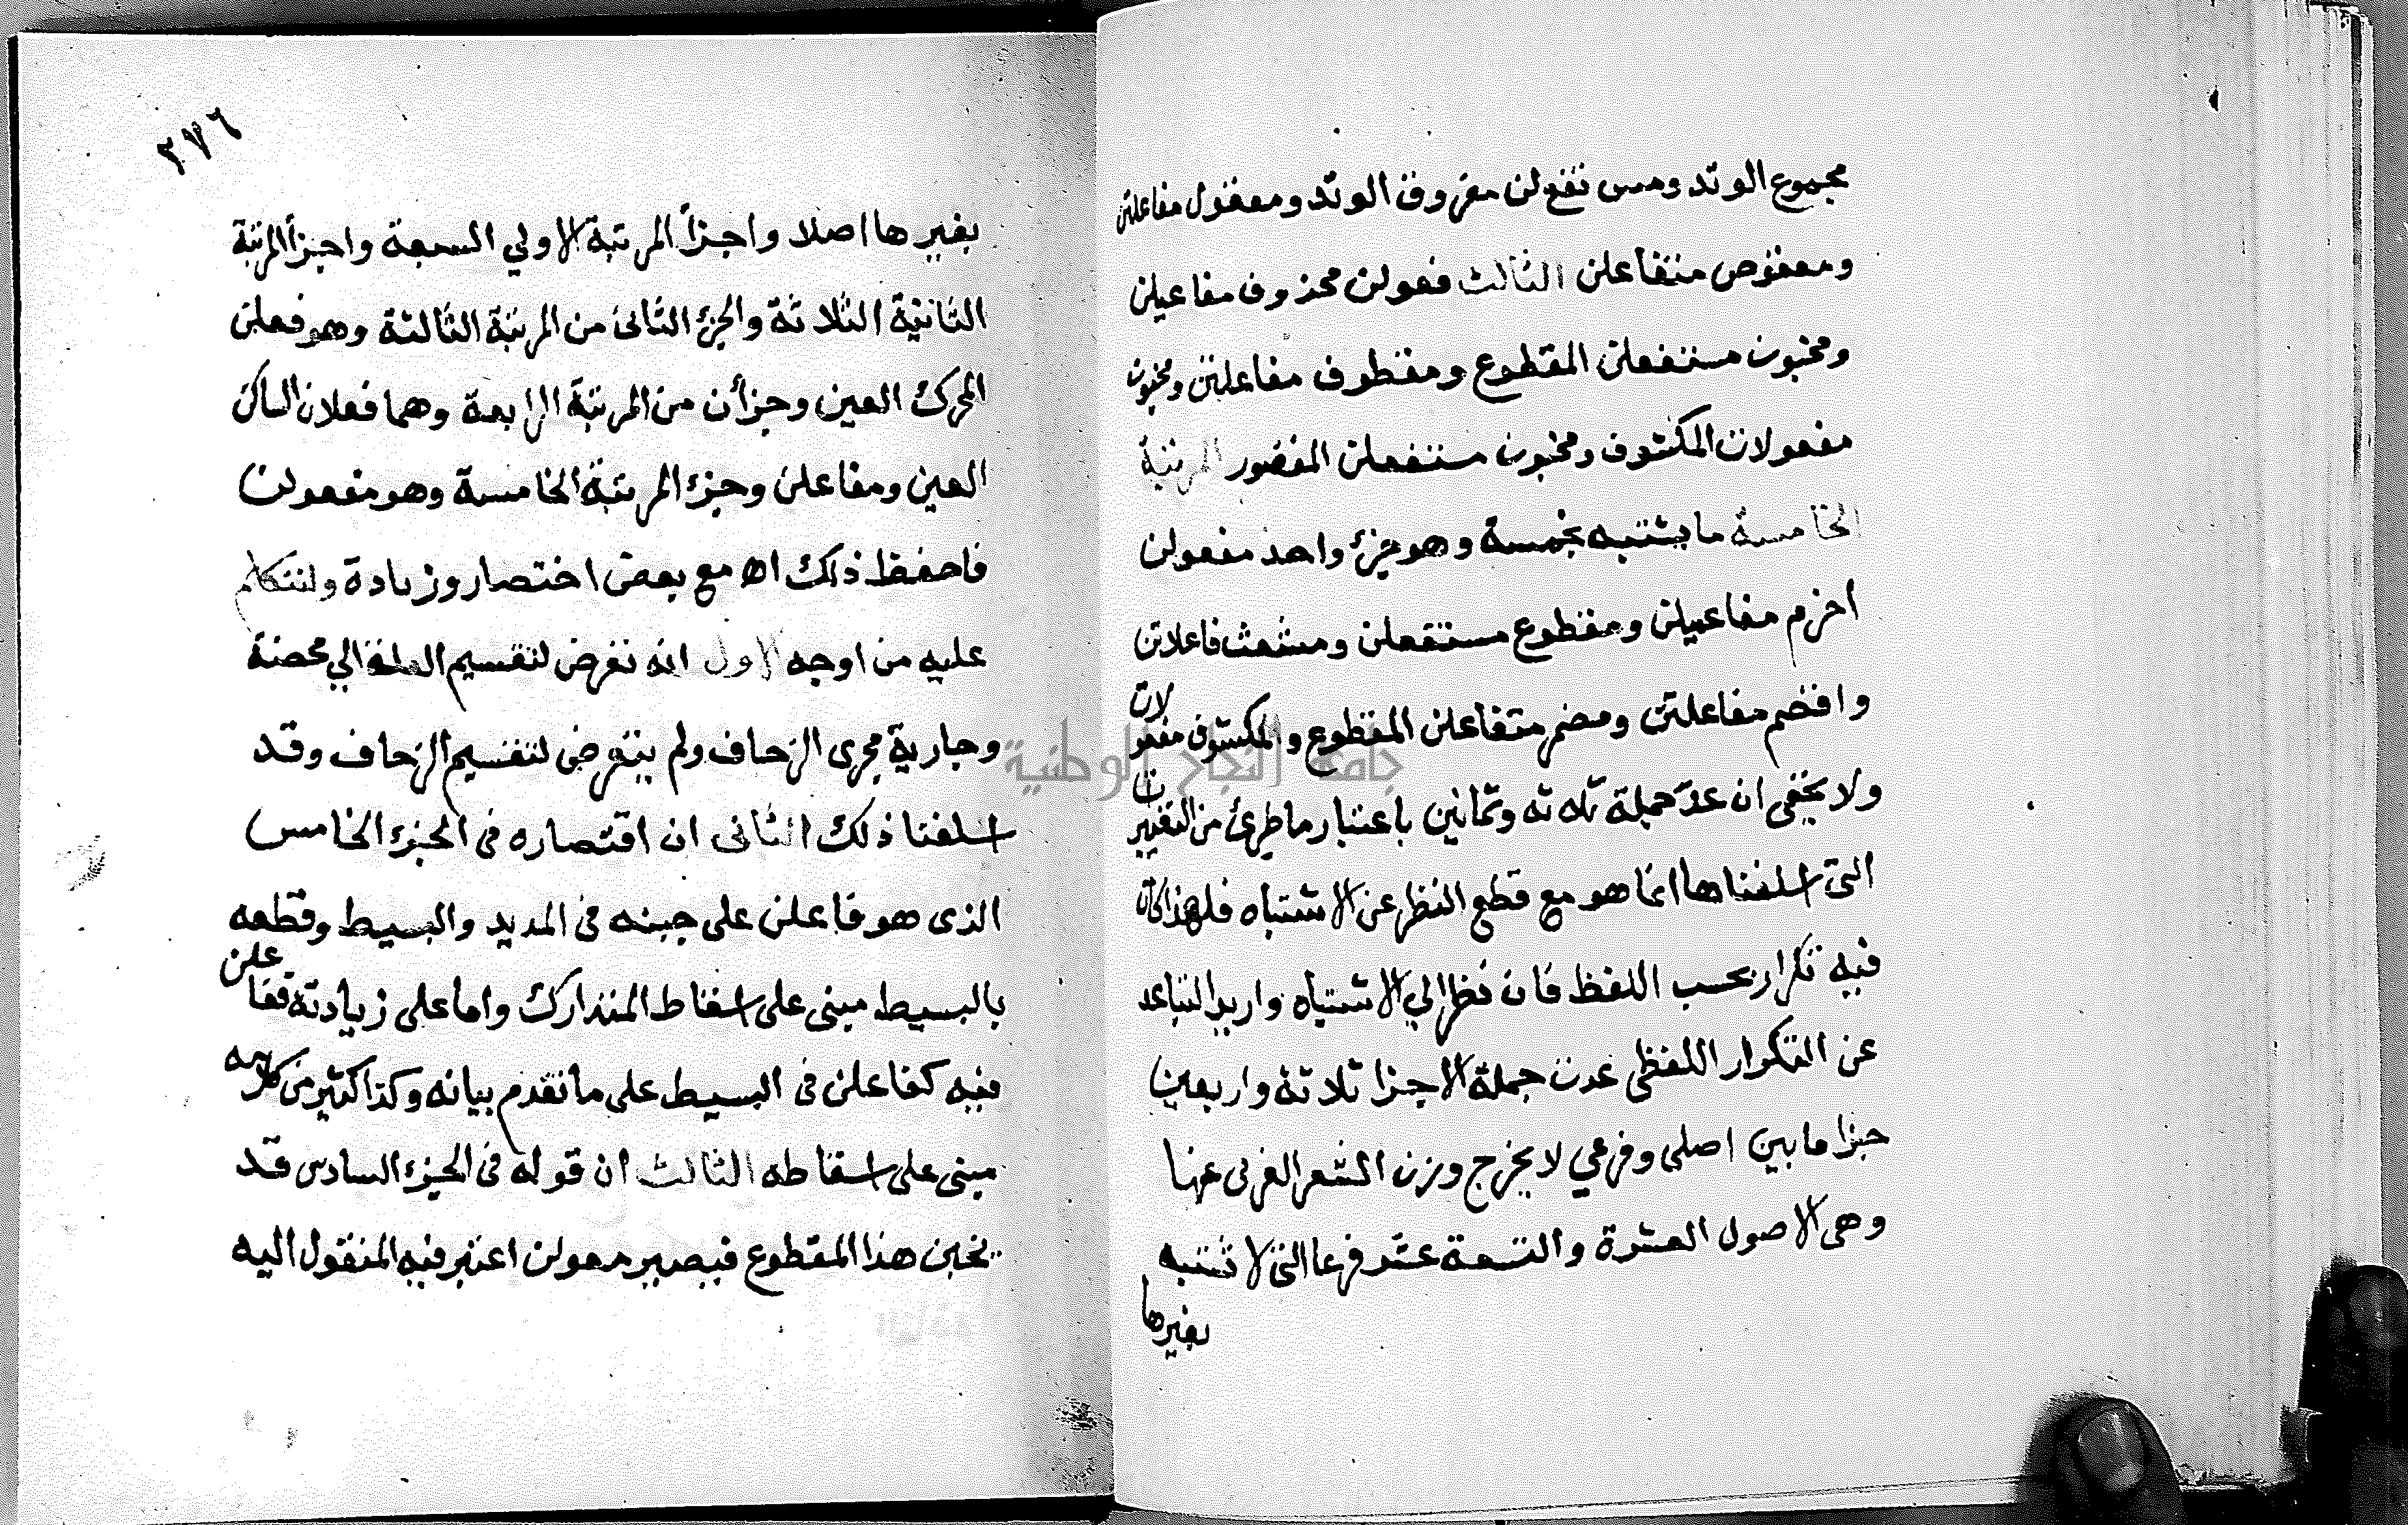 مجموع الوتد ومس تفع لن مفروق الوتد ومعقول مفاعلتن
ومعقوص متفاعلن الثالث فعولن محذوف مفاعيلن
ومخبون مستفعلن المقطوع ومقطوف مفاعلتن ومخبون
مفعولات المكشوف ومخبون مستفعلن المقصور المرتبة
الخامسة ما يشتبه بخمسة وهو جزء واحد مفعولن
اخزم مفاعيلن ومقطوع مستفعلن ومشعث فاعلاتن
واقصم مفاعلتن ومضمر متفاعلن المقطوع والمكشوف مفعولات
ولا يخفى ان عد جملة ثلاثة وثمانين باعتبار ما طرئ من التغييرات
التي اسلفناها انما هو مع قطع النظر عن الاشتباه فلهذا كان
فيه تكرار بحسب اللفظ فان نظر الي الاشتباه واريد التباعد
عن التكرار اللفظي عدت جملة الاجزا ثلاثة واربعين
جزا ما بين اصلي وفرعي لا يخرج وزن الشعر العربى عنها
وهى الاصول العشرة والتسعة عشر فرعا التي لا تشتبه
بغيرها
جامعة النجاح الوطنية
٢٧٦
بغيرها اصلا واجزأ المرتبة الاولي السبعة واجزأ المرتبة
الثانية الثلاثة والجزء الثانى من المرتبة الثالثة وهو فعلن
المحرك العين وجزأن من المرتبة الرابعة وهما فعلان الساكن
العين ومفاعلن وجزء المرتبة الخامسة وهو مفعولن
فاحفظ ذلك اه مع بعض اختصار وزيادة ولنتكلم
عليه من اوجه الاول انه تعرض لتقسيم العلة الي محضة
وجارية مجرى الزحاف ولم يتعرض لتقسيم الزحاف وقد
اسلفنا ذلك الثانى ان اقتصاره فى الجزء الخامس
الذى هو فاعلن على خبنه فى المديد والبسيط وقطعه
بالبسيط مبنى على اسقاط المتدارك واما على زيادته ففاعلن
فيه كفاعلن فى البسيط على ما تقدم بيانه وكذا كثير من كلامه
مبنى على اسقاطه الثالث ان قوله فى الجزء السادس قد
يخبن هذا المقطوع فيصير معولن اعتبر فيه المنقول اليه